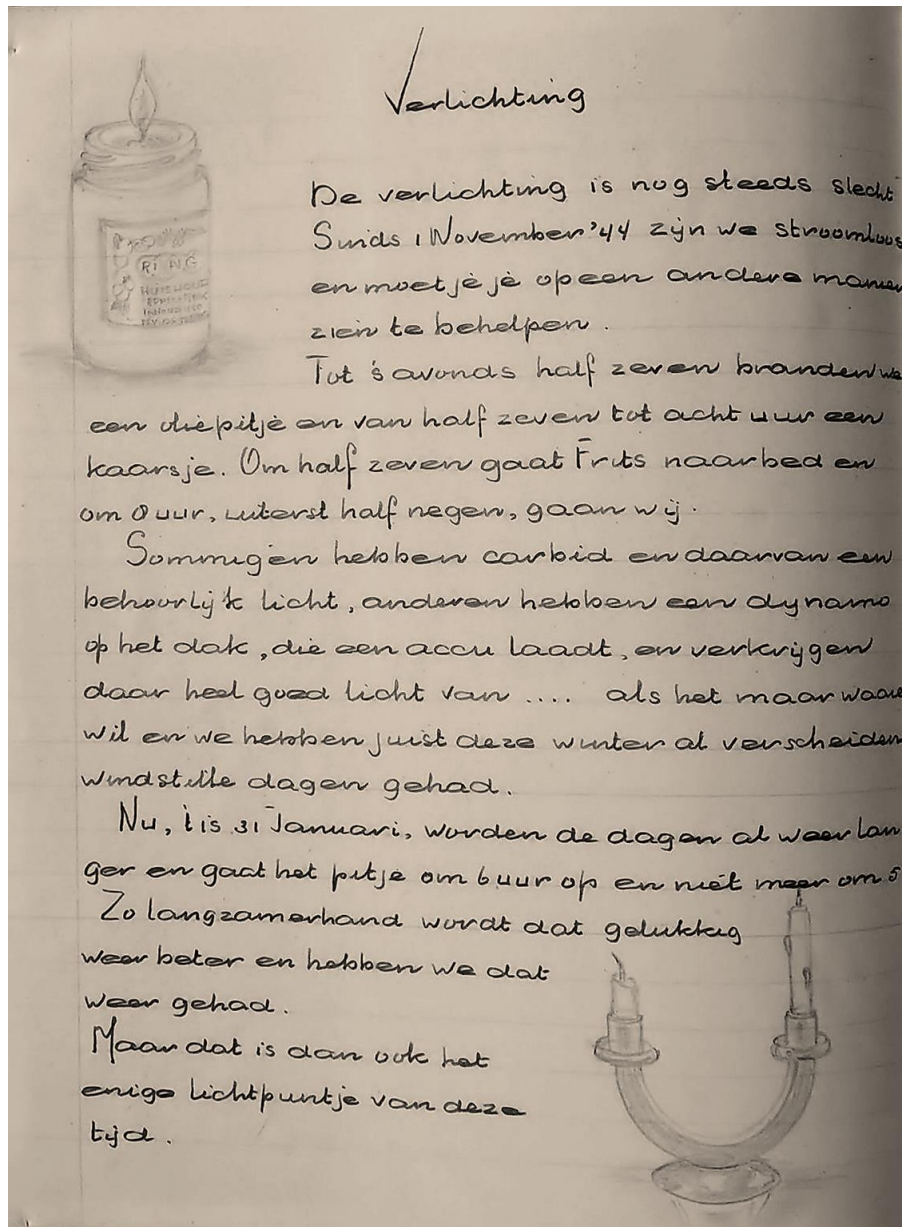 Verlichting
RING
De verlichting is nog steeds slecht
Sinds 1 November '44 zijn we stroomloos
en moet je je op een andere manier
zien te behelpen.
Tot 's avonds half zeven branden we
een oliepitje en van half zeven tot acht uur een
kaarsje. Om half zeven gaat Frits naar bed en
om 8 uur, uiterst half negen, gaan wij.
Sommigen hebben carbid en daarvan een
behoorlijk licht, anderen hebben een dynamo
op het dak, die een accu laadt, en verkrijgen
daar heel goed licht van .... als het maar waaie
wil en we hebben juist deze winter al verscheiden
windstille dagen gehad.
Nu, 't is 31 Januari, worden de dagen al weer lan
ger en gaat het pitje om 6 uur op en niet meer om 5
Zo langzamerhand wordt dat gelukkig
weer beter en hebben we dat
weer gehad.
Maar dat is dan ook het
enige lichtpuntje van deze
tijd.